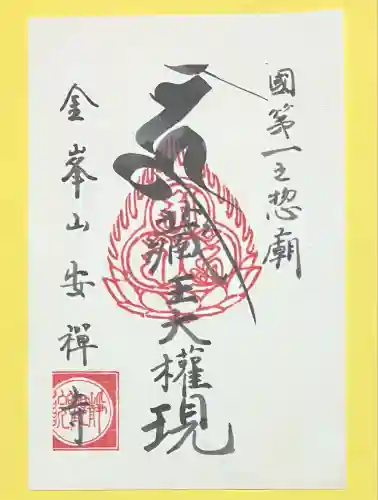 國第一之惣廟
蔵王大權現
金峯山安禅寺